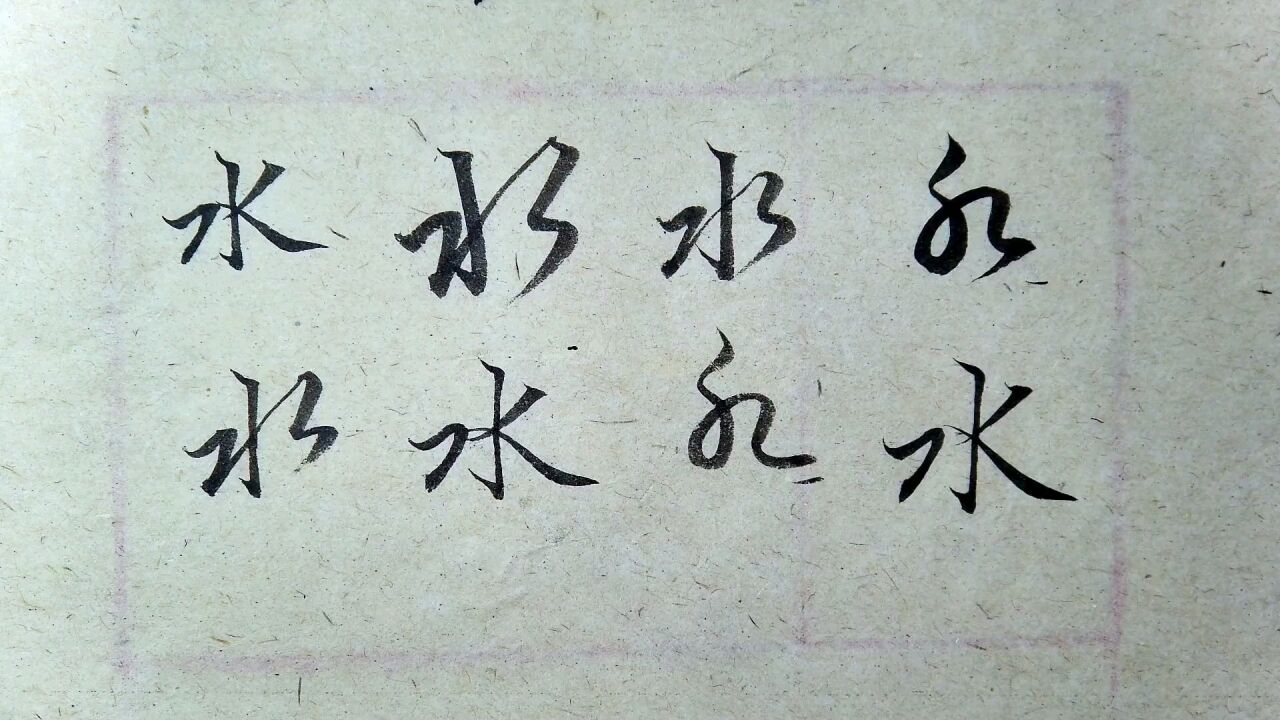 水水水水
水水水水